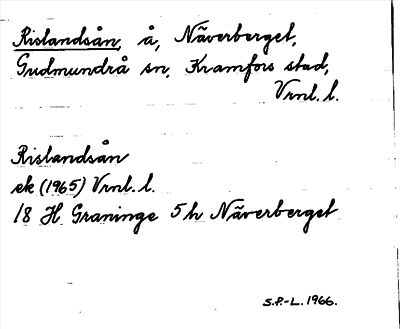 Rislandsån, å, Näverberget,
Gudmundrå sn, Kramfors stad,
Vrnl. l.
Rislandsån
ek (1965) Vrnl. l.
18 H Graninge 5h Näverberget
S.P.-L. 1966.